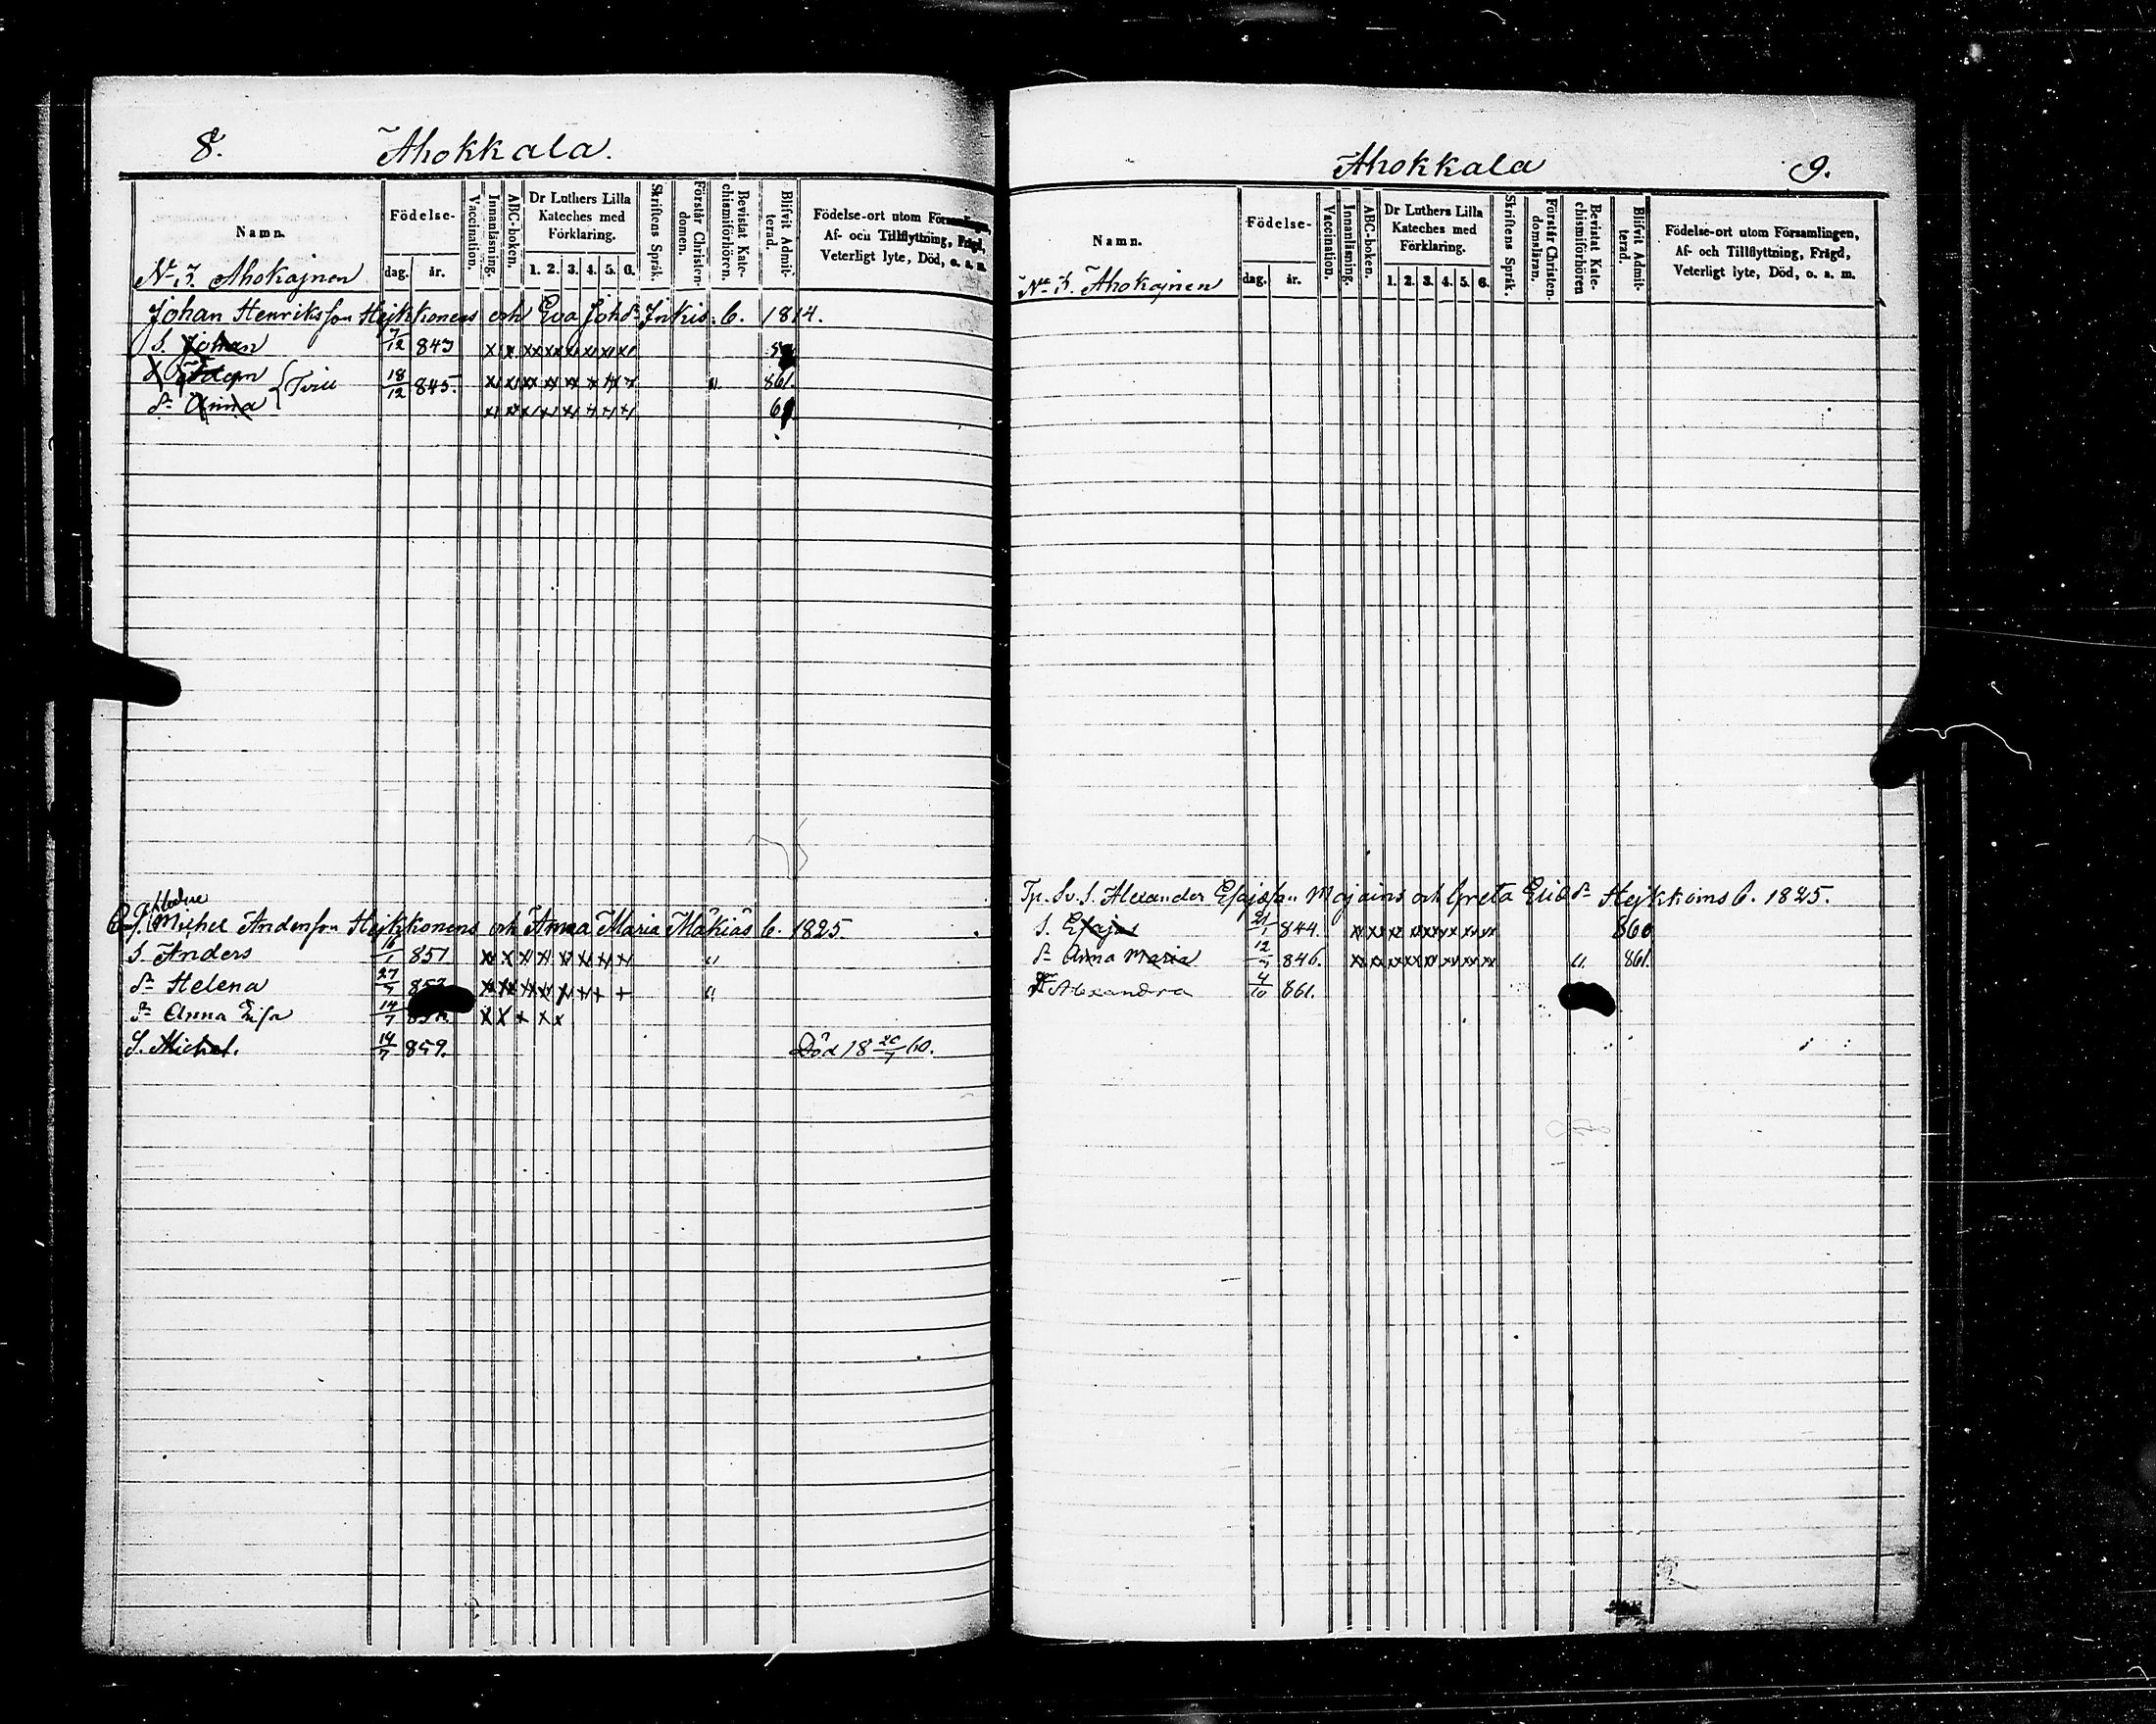 8. Ahokkala.
Namn. Födelse- Vaccination. Innanläsning. ABC-boken. Dr Luthers Lilla Kateches med Förklaring. Skriftens Språk. Förstår Christen-domen. Bevistat Kate-chismiförhören. Blifvit Admit-terad. Födelse-ort utom Församlingen, Af- och Tillflyttning, Frägd, Veterligt lyte, Död, o. s. m.
dag. år. 1. 2. 3. 4. 5. 6.
No 3. Ahokajnen
Johan Henriksson Hejkkonens och Eva Johdr Inkis. C. 1814.
S. Johan 7/12 843 x x xx xx x x x x
18/12 845. x x xx x x x x x " 861.
dr Anna x x x x x x x x
Michel Andersson Hejkkonens och Anna Maria Mäkiäs C. 1825.
S. Anders 16/1 851 x x x x x x x x "
dr Helena 27/7 x x x x x x x x "
dr Anna 14/7 x x x x x
S. Michel. 14/7 859. Död 18 20/7 60.
Ahokkala 9.
Namn. Födelse- Vaccination. Innanläsning. ABC-boken. Dr Luthers Lilla Kateches med Förklaring. Skriftens Språk. Förstår Christen-domsläran. Bevistat Kate-chismiförhören Blifvit Admit-terad. Födelse-ort utom Församlingen, Af- och Tillflyttning, Frägd, Veterligt lyte, Död, o. s. m.
dag. år. 1. 2. 3. 4. 5. 6.
No 3. Ahokajnen
Alexander och Greta Hejkkoins C. 1825.
S. Esajas 21/1 844. x x x x x x x x 860
dr Anna Maria 12/7 846. x x x x x x x x " 861.
Alexandra 4/10 861.